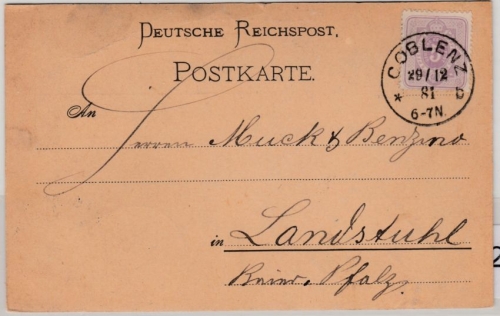 DEUTSCHE REICHSPOST.
POSTKARTE.
COBLENZ
29/12
81
* b
6-7N.
An
Herren Muck & Benzino
in Landstuhl
Baier. Pfalz.
2